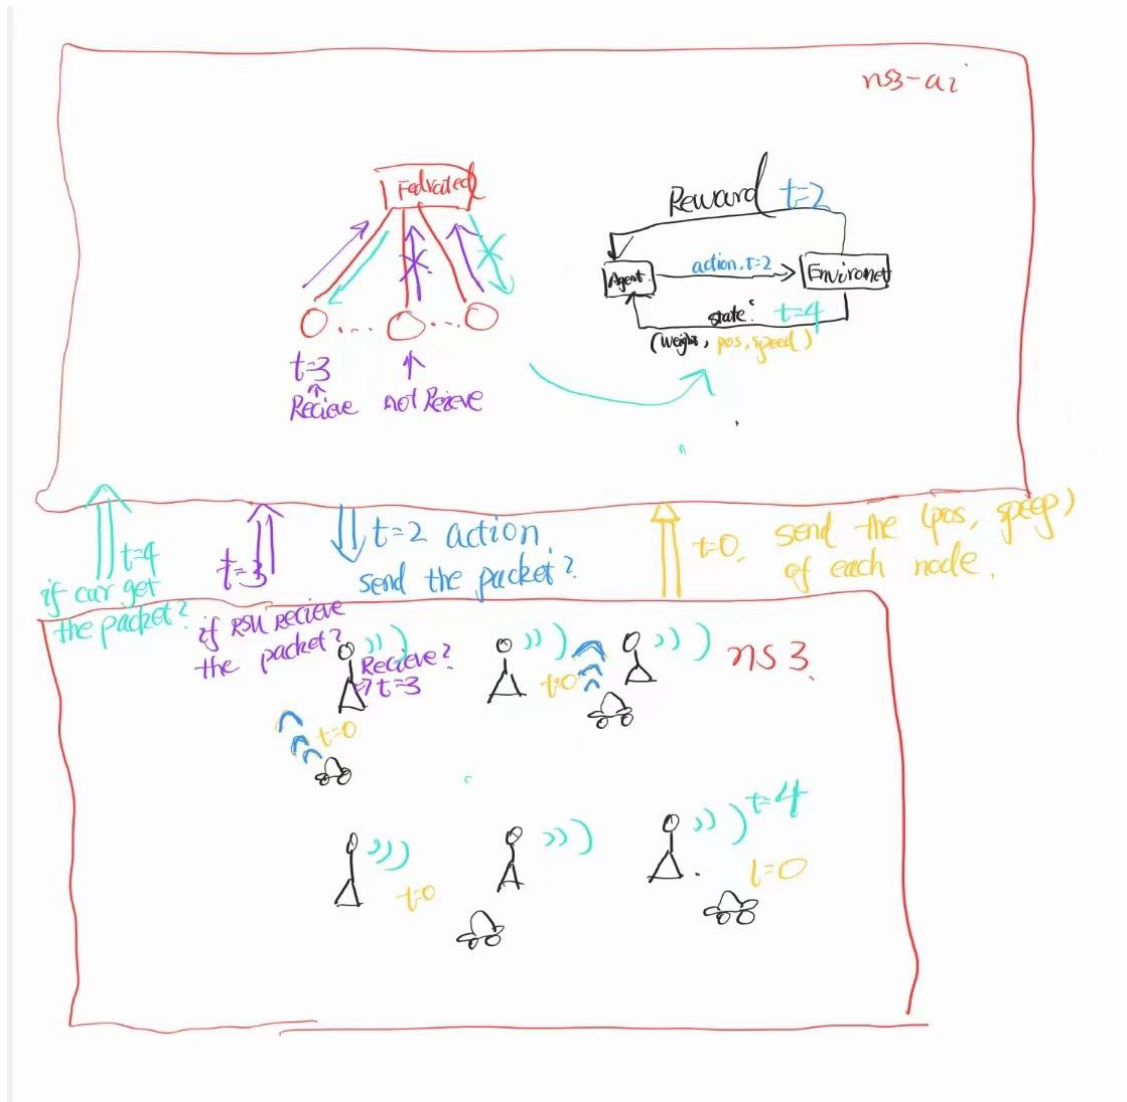 ns3-ai
Fedrated
Reward t=2
Agent
action, t=2
Environet
state: t=4
(weight, pos, speed)
t=3
Recieve
not Recieve
t=4
if car get
the packet?
t=3
if RSU recieve
the packet?
t=2 action
send the packet?
t=0, send the (pos, speep)
of each node.
ns3
Recieve?
t=3
t=0
t=0
t=4
t=0
t=0